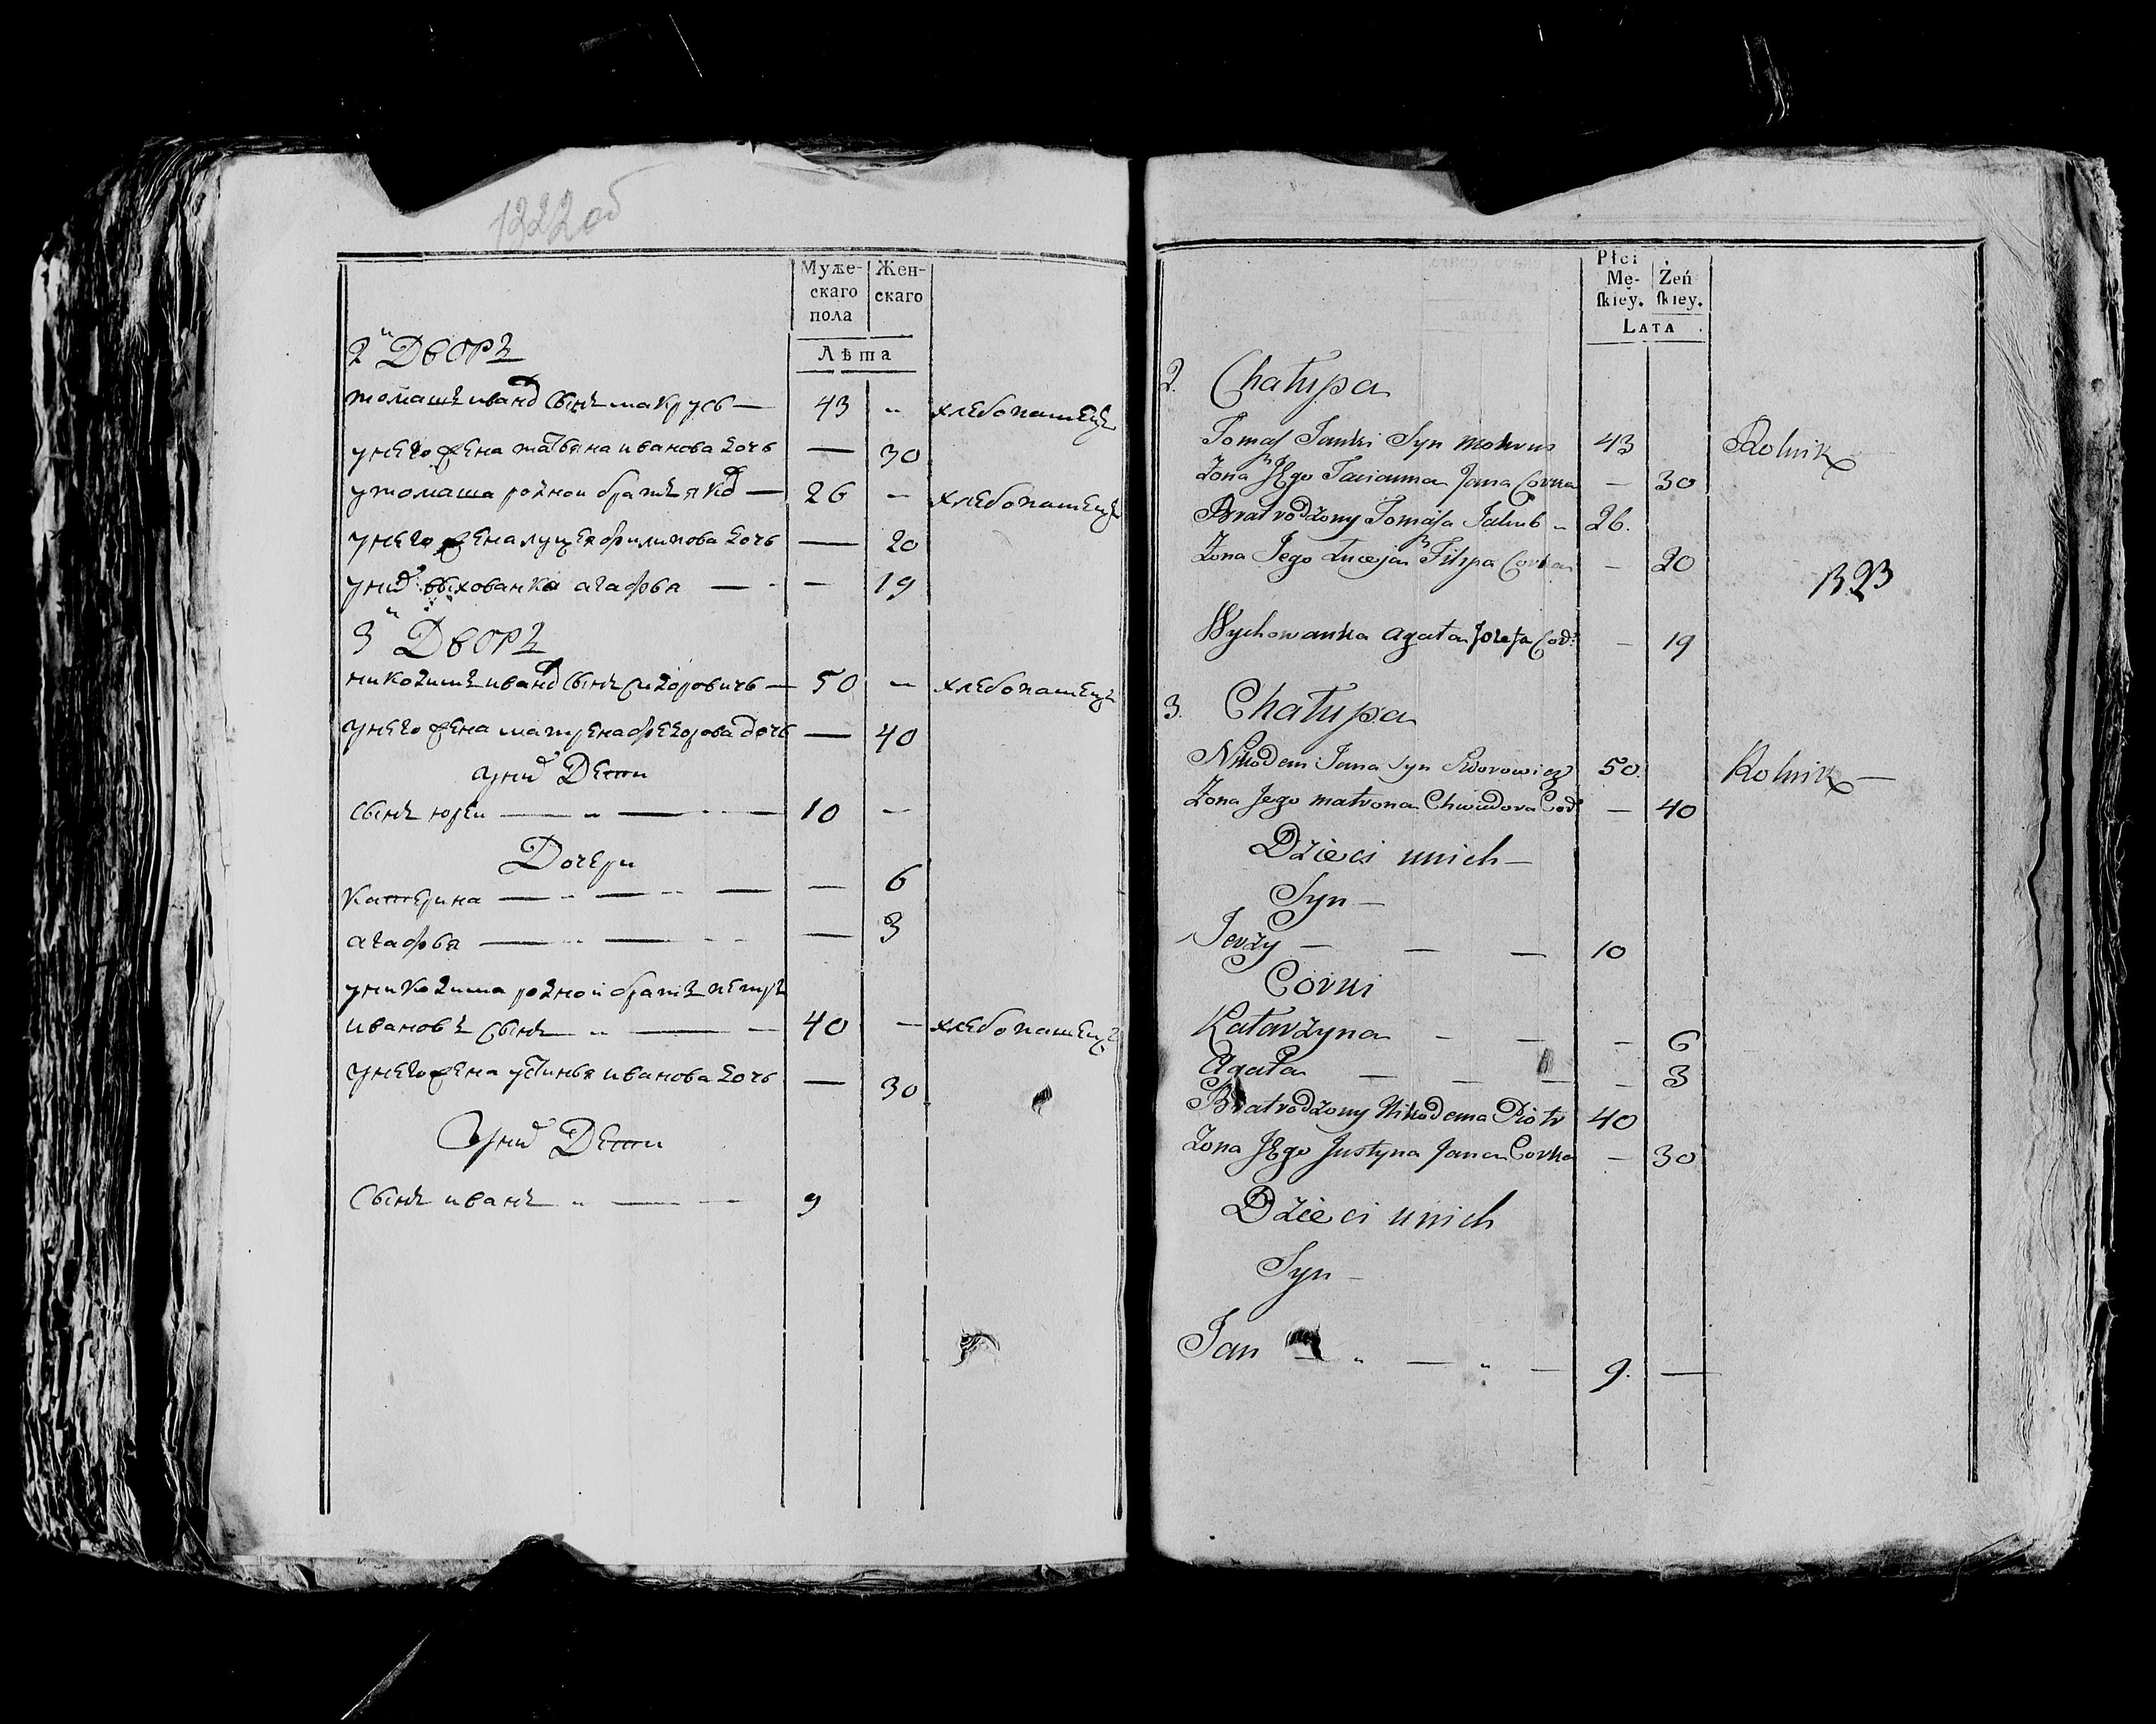 1322 об
Муже-
скаго
пола
Жен-
скаго
Лѣта
2й Дворъ
томашъ иванов сынъ макрусь — 43 „ хлебопашецъ
у него жена татьяна иванова дочь — 30
у томаша родной братъ яков — 26 — хлебопашецъ
у него жена луцея филипова дочь — 20
у них выхованка агафья — — 19
3й Дворъ
никодимъ иванов сынъ сидоровичь — 50 — хлебопашецъ
у него жена матрена федорова дочь — 40
у них Дети
сынъ юрей — „ — 10 —
Дочери
катерина — „ — — 6
агафья — „ — — 3
у никодима родной братъ петръ
ивановъ сынъ „ — 40 — хлебопашецъ
у него жена устинья иванова дочь — 30
у них Дети
сынъ иванъ „ — 9
Płci
Mę-
skiey.
Żeń
skiey.
LATA
2. Chałupa
Tomasz Janki Syn Mokrus 43 Rolnik
Żona Jego Tacianna Jana Corka — 30
Brat rodzony Tomasza Jakub „ 26.
Żona Jego Łuceja Filipa Corka — 20
1323
Wychowanka Agata Jozefa Cor: — 19
3. Chałupa
Nikodem Jana Syn Sidorowicz 50. Rolnik —
Żona Jego Matrona Chwiedora Cor — 40
Dzieci u nich —
Syn —
Jerzy — — — 10
Corki
Katarzyna — — — 6
Agata — — — — 3
Brat rodzony Nikodema Piotr 40
Żona Jego Justyna Jana Corka — 30
Dzieci u nich
Syn —
Jan — „ — „ — 9. —